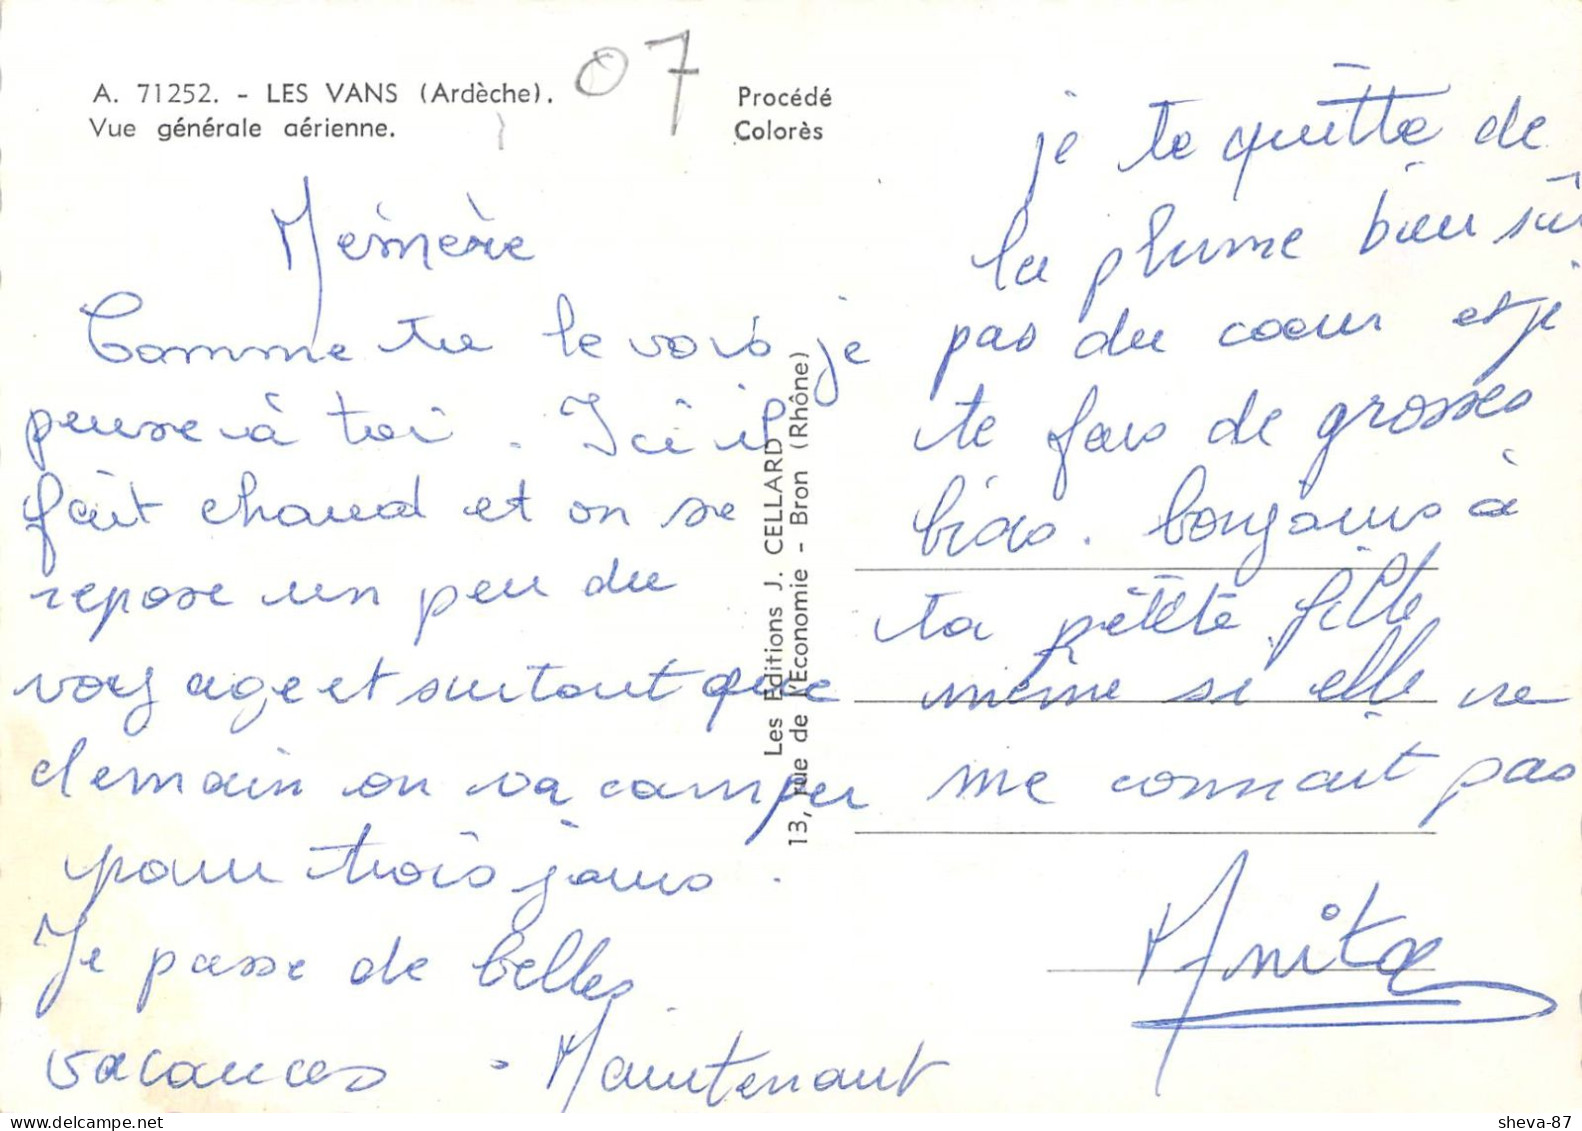 A. 71252. - LES VANS (Ardèche).
Vue générale aérienne.
07
Procédé
Colorès
Mémère
Comme tu le vois je
pense à toi. Ici il
fait chaud et on se
repose un peu du
voyage et surtout que
demain on va camper
pour trois jours.
Je passe de belles
vacances. Maintenant
Les Editions J. CELLARD
13, rue de l'Economie - Bron (Rhône)
je te quitte de
la plume bien sûr
pas du coeur et je
te fais de grosses
bises. bonjours à
ta petite fille
même si elle ne
me connait pas
Anita
sheva-87